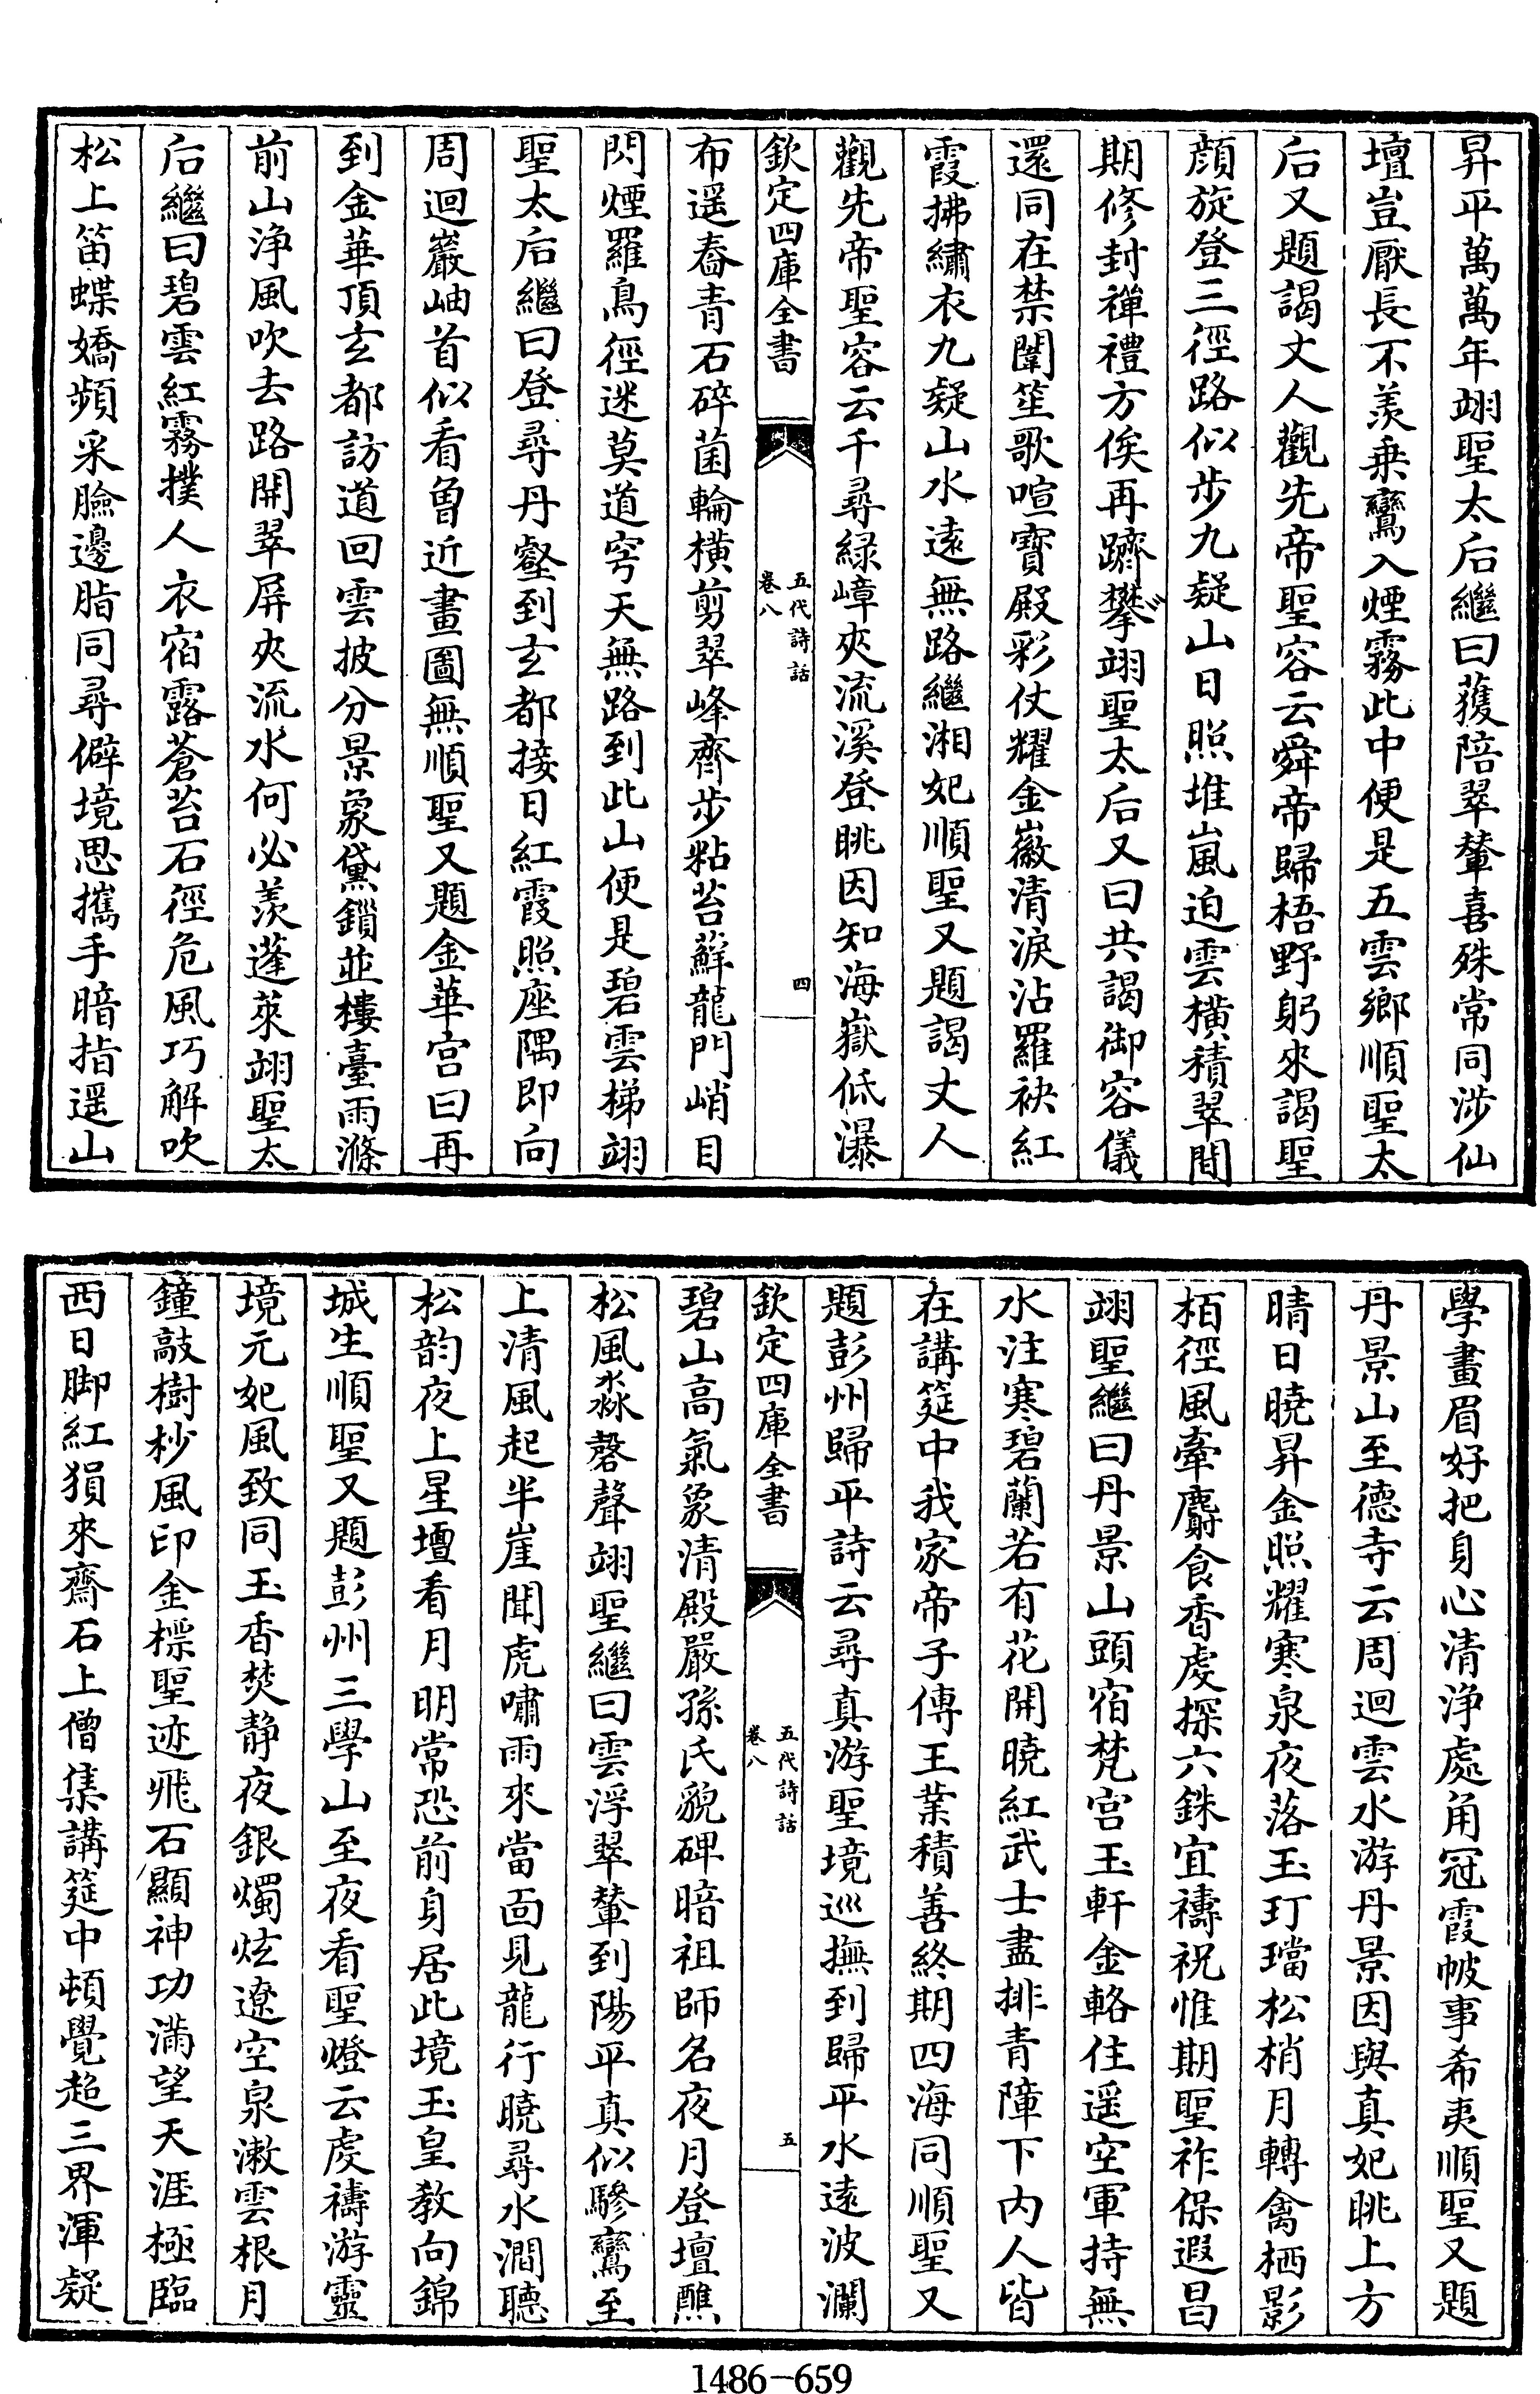 昇平萬萬年翊聖太后繼曰獲陪翠輦喜殊常同涉仙
壇豈厭長不羨乗鸞入煙霧此中便是五雲鄉順聖太
后又題謁丈人觀先帝聖容云舜帝歸梧野躬來謁聖
顔旋登三徑路似步九疑山日照堆嵐迫雲橫積翠閒
期修封禪禮方俟再躋攀翊聖太后又曰共謁御容儀
還同在禁闈笙歌喧寶殿彩仗耀金徽清淚沾羅袂紅
霞拂繡衣九疑山水遠無路繼湘妃順聖又題謁丈人
觀先帝聖容云千尋緑嶂夾流溪登眺因知海嶽低瀑
欽定四庫全書
五代詩話
卷八
四
布遥舂青石碎菌輪橫剪翠峰齊步粘苔蘚龍門峭目
閃煙羅鳥徑迷莫道穹天無路到此山便是碧雲梯翊
聖太后繼曰登尋丹壑到玄都接日紅霞照座隅即向
周迴巖岫首似看曾近畫圖無順聖又題金華宮曰再
到金華頂玄都訪道回雲披分景象黛鎖並樓臺雨滌
前山浄風吹去路開翠屏夾流水何必羨蓬萊翊聖太
后繼曰碧雲紅霧撲人衣宿露蒼苔石徑危風巧解吹
松上笛蝶嬌頻采臉邊脂同尋僻境思攜手暗指遥山
學畫眉好把身心清浄處角冠霞帔事希夷順聖又題
丹景山至德寺云周迴雲水游丹景因與真妃眺上方
晴日曉昇金照耀寒泉夜落玉玎璫松梢月轉禽栖影
栢徑風牽麝食香虔探六銖宜禱祝惟期聖祚保遐昌
翊聖繼曰丹景山頭宿梵宮玉軒金輅住遥空軍持無
水注寒碧蘭若有花開曉紅武士盡排青障下内人皆
在講筵中我家帝子傳王業積善終期四海同順聖又
題彭州歸平詩云尋真游聖境巡撫到歸平水遠波瀾
欽定四庫全書
五代詩話
卷八
五
碧山高氣象清殿嚴孫氏貌碑暗祖師名夜月登壇醮
松風森磬聲翊聖繼曰雲浮翠輦到陽平真似驂鸞至
上清風起半崖聞虎嘯雨來當面見龍行曉尋水澗聽
松韵夜上星壇看月明常恐前身居此境玉皇教向錦
城生順聖又題彭州三學山至夜看聖燈云虔禱游靈
境元妃風致同玉香焚静夜銀燭炫遼空泉漱雲根月
鐘敲樹杪風印金標聖迹飛石顯神功滿望天涯極臨
西日脚紅猨來齋石上僧集講筵中頓覺超三界渾疑
1486-659